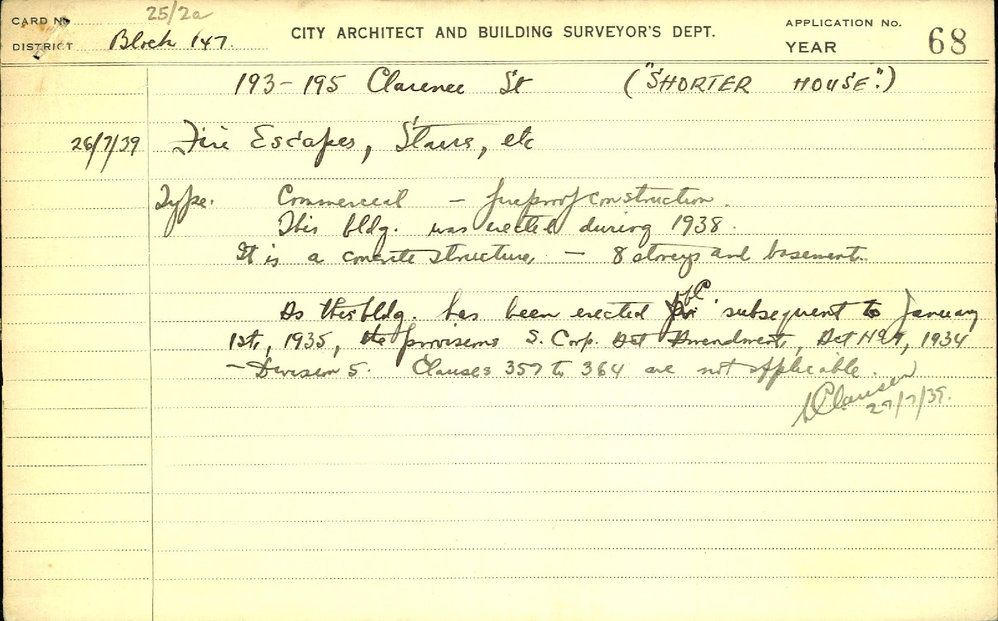 25/2a
CARD No
CITY ARCHITECT AND BUILDING SURVEYOR'S DEPT.
APPLICATION No.
DISTRICT Block 147.
YEAR
68
193-195 Clarence St ("SHORTER HOUSE".)
26/7/39 Fire Escapes, Stairs, etc
Type. Commercial - fireproof construction.
This bldg. was erected during 1938.
It is a concrete structure, - 8 storeys and basement.
As this bldg. has been erected subsequent to January
1st, 1935, the provisions S. Corp. Act Amendment, Act No 9, 1934
- Division 5. Clauses 357 to 364 are not applicable.
Clausen
27/7/39.